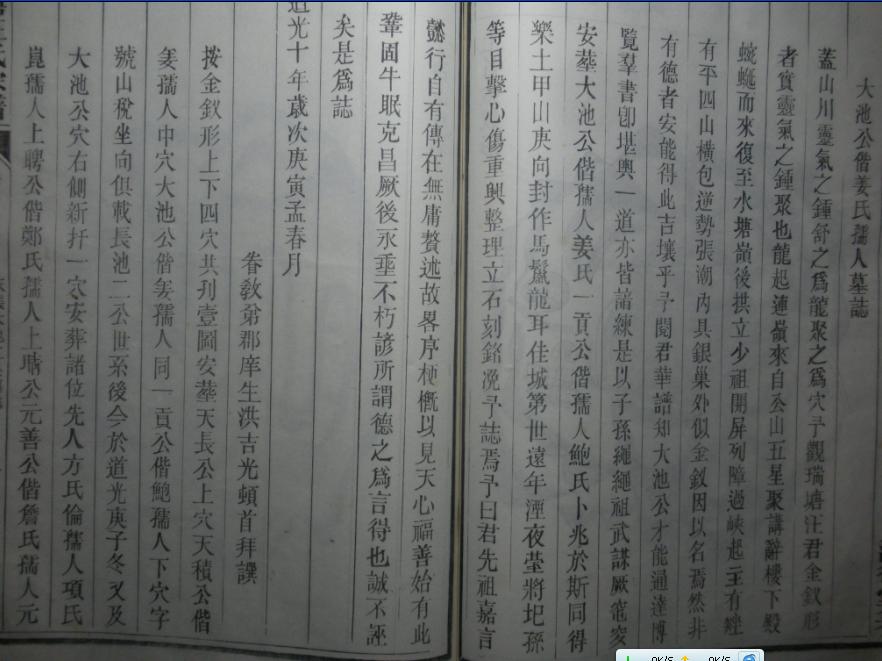 大池公偕姜氏孺人墓誌
蓋山川靈氣之鍾舒之爲龍聚之爲穴予觀瑞塘汪君金釵形
者實靈氣之鍾聚也龍起連嶺來自公山五星聚講辭樓下殿
蜿蜒而來復至水塘嶺後拱立少祖開屏列障過峽起主有經
有平四山橫包逆勢張潮內具銀巢外似金釵因以名焉然非
有德者安能得此吉壤乎予閱君華譜知大池公才能通達博
覽羣書卽堪輿一道亦皆諳練是以子孫繩繩祖武謀厥窀穸
安塟大池公偕孺人姜氏一貢公偕孺人鮑氏卜兆於斯同得
樂土甲山庚向封作馬鬣龍耳佳城第世遠年湮夜臺將圯孫
等目擊心傷重興整理立石刻銘凂予誌焉予曰君先祖嘉言
懿行自有傳在無庸贅述故畧序梗慨以見天心福善始有此
鞏固牛眠克昌厥後永垂不朽諺所謂德之爲言得也誠不誣
矣是爲誌
道光十年歲次庚寅孟春月
眷敎弟郡庠生洪吉光頓首拜譔
按金釵形上下四穴共刋壹圖安塟天長公上穴天積公偕
姜孺人中穴大池公偕姜孺人同一貢公偕鮑孺人下穴字
號山稅坐向俱載長池二公世系後今於道光庚子冬又及
大池公穴右側新扦一穴安葬諸位先人方氏倫孺人項氏
崑孺人上聘公偕鄭氏孺人上購公元善公偕詹氏孺人元